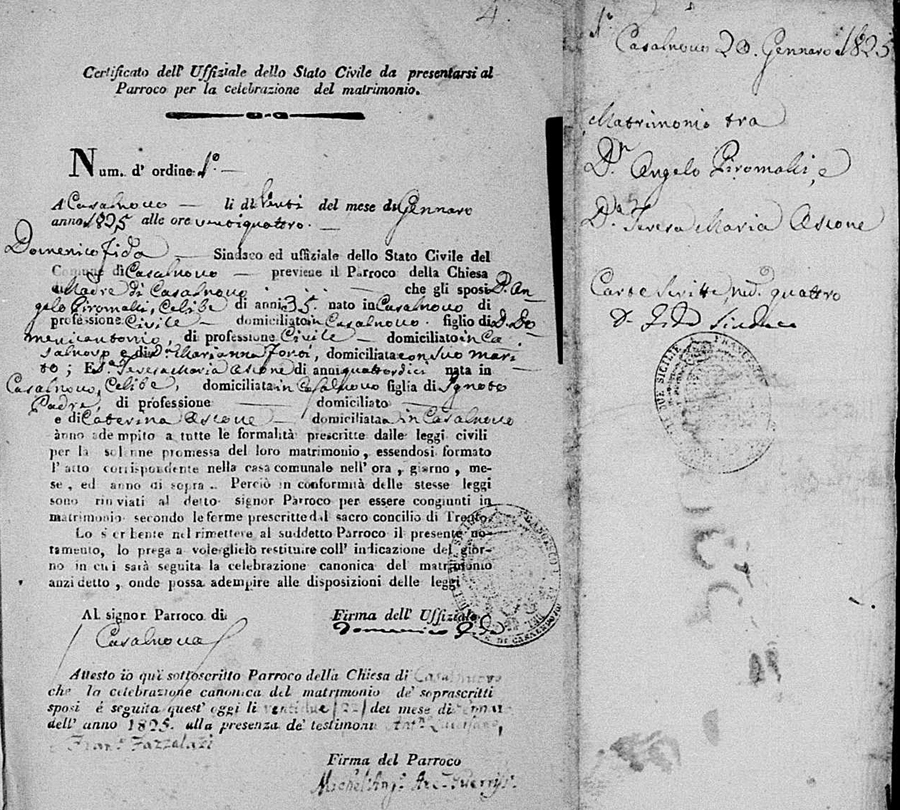 4.
Certificato dell' Uffiziale dello Stato Civile da presentarsi al
Parroco per la celebrazione del matrimonio.
Num. d' ordine 1°
A Casalnovo li dì Venti del mese di Gennaro
anno 1825 alle ore ventiquatro.
Domenico Fida Sindaco ed uffiziale dello Stato Civile del
Comune di Casalnovo previene il Parroco della Chiesa
Madre di Casalnovo che gli sposi D. An-
gelo Piromalli, Celibe di anni 35. nato in Casalnovo di
professione Civile domiciliato in Casalnovo. figlio di D. Do
menicantonio di professione Civile domiciliato in Ca
salnovo e di D. Marianna domiciliata con suo mari-
to; E D.a Teresa Maria Ascone di anni quattordici nata in
Casalnovo, Celibe, domiciliata in Casalnovo figlia di Ignoto
Padre di professione domiciliato
e di Caterina Ascone domiciliata in Casalnovo
ànno adempito a tutte le formalità prescritte dalle leggi civili
per la solenne promessa del loro matrimonio, essendosi formato
l' atto corrispondente nella casa comunale nell' ora, giorno, me-
se, ed anno di sopra.. Perciò in conformità delle stesse leggi
sono rinviati al detto signor Parroco per essere congiunti in
matrimonio secondo le forme prescritte dal sacro concilio di Trento.
Lo scrivente nel rimettere al suddetto Parroco il presente no-
tamento, lo prega a voleglielo restituire coll' indicazione del gior-
no in cui sarà seguita la celebrazione canonica del matrimonio
anzidetto, onde possa adempire alle disposizioni delle leggi
Al signor Parroco di
Casalnova
Firma dell' Uffiziale
Domenico
Attesto io quì sottoscritto Parroco della Chiesa di Casalnuovo
che la celebrazione canonica del matrimonio de' soprascritti
sposi è seguita quest' oggi li ventidue (22) del mese di
dell' anno 1825. alla presenza de' testimonj Ant.°
e Fran.° Fazzalari
Firma del Parroco
Michel' Ang.°
1°
Casalnovo 20. Gennaro 1825
Matrimonio tra
D.n Angelo Piromalli, e
D.a Teresa Maria Ascone
Carte Scritte quattro
D. Fida Sindaco
DUE SICILIE FRANCESCO
FRANCESCO I DUE SICILIE DI CASALNOVO